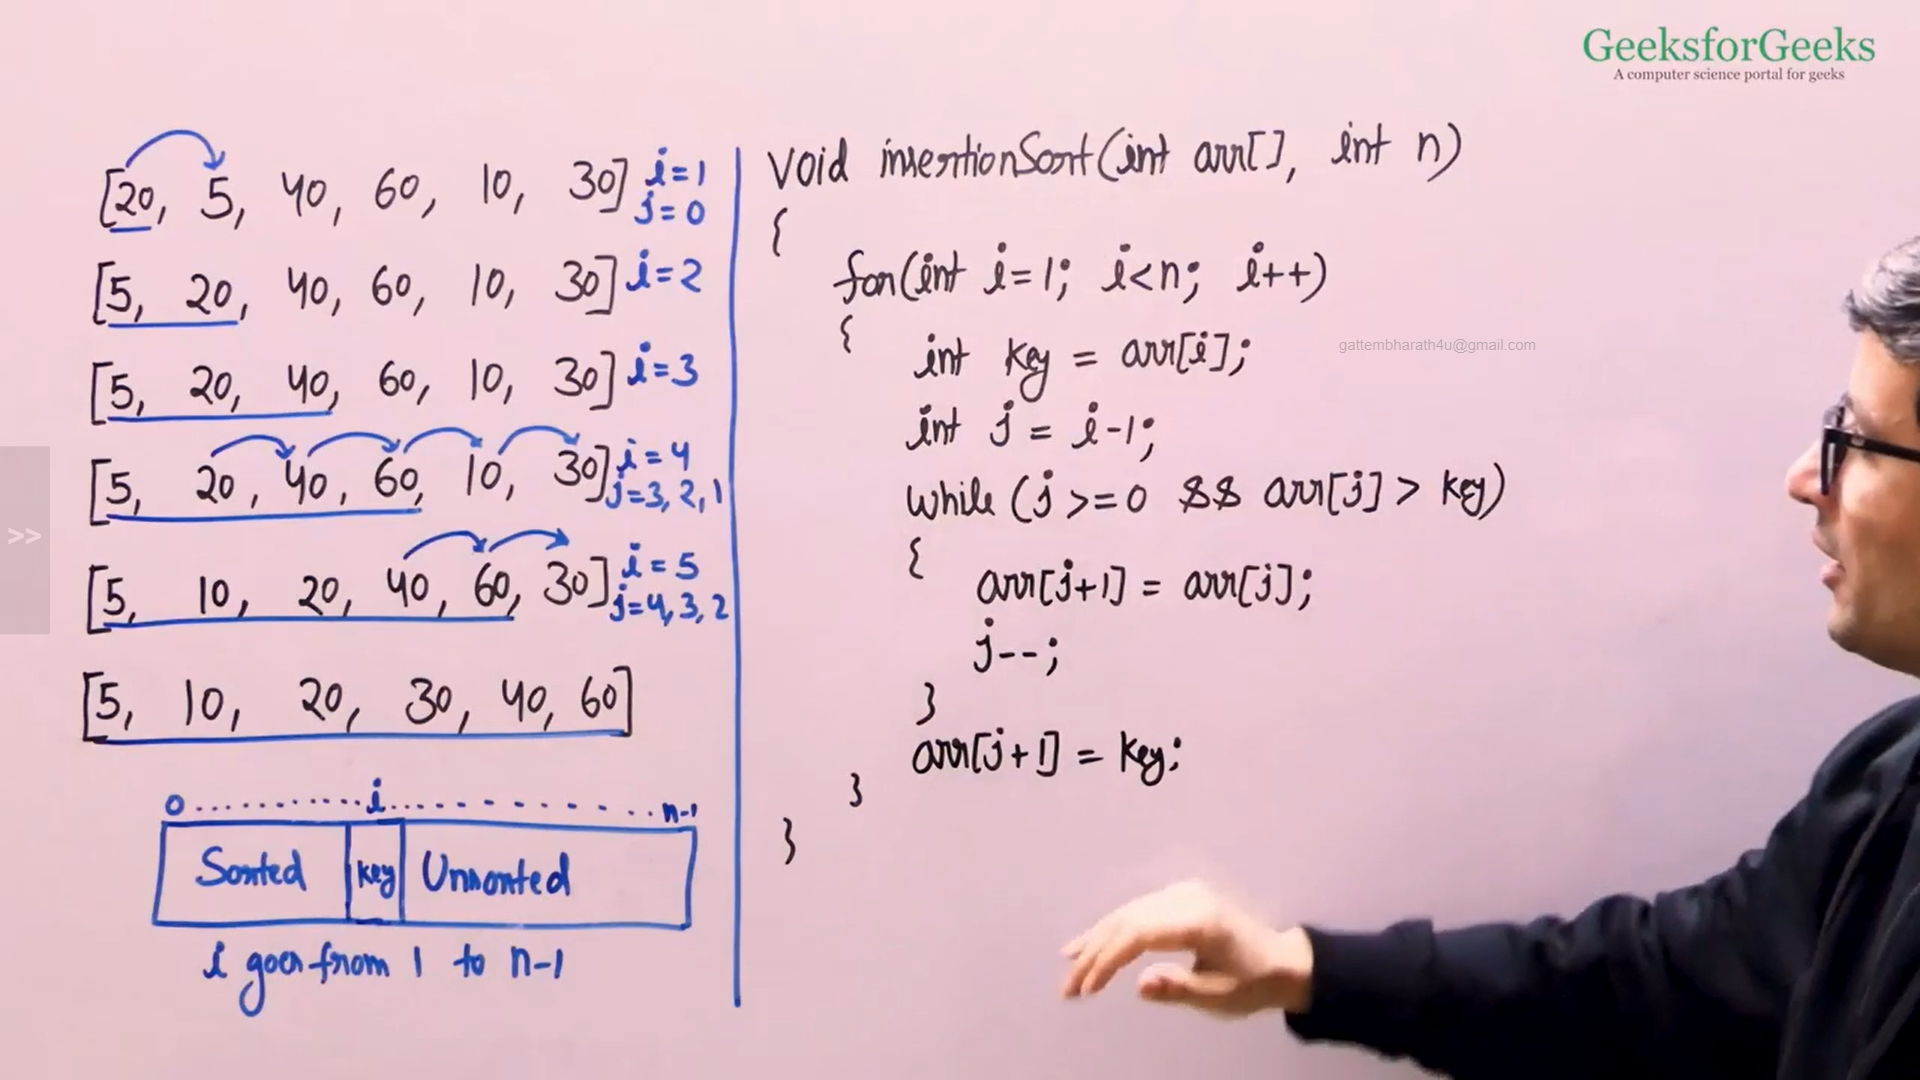 GeeksforGeeks
A computer science portal for geeks
[20, 5, 40, 60, 10, 30] i=1
j=0
[5, 20, 40, 60, 10, 30] i=2
[5, 20, 40, 60, 10, 30] i=3
[5, 20, 40, 60, 10, 30] i=4
j=3, 2, 1
[5, 10, 20, 40, 60, 30] i=5
j=4, 3, 2
[5, 10, 20, 30, 40, 60]
0 i n-1
Sorted key Unsorted
i goes from 1 to n-1
void insertionSort(int arr[], int n)
{
for(int i=1; i<n; i++)
{
int key = arr[i];
gattembharath4u@gmail.com
int j = i-1;
while (j >=0 && arr[j] > key)
{
arr[j+1] = arr[j];
j--;
}
arr[j+1] = key;
}
}
>>